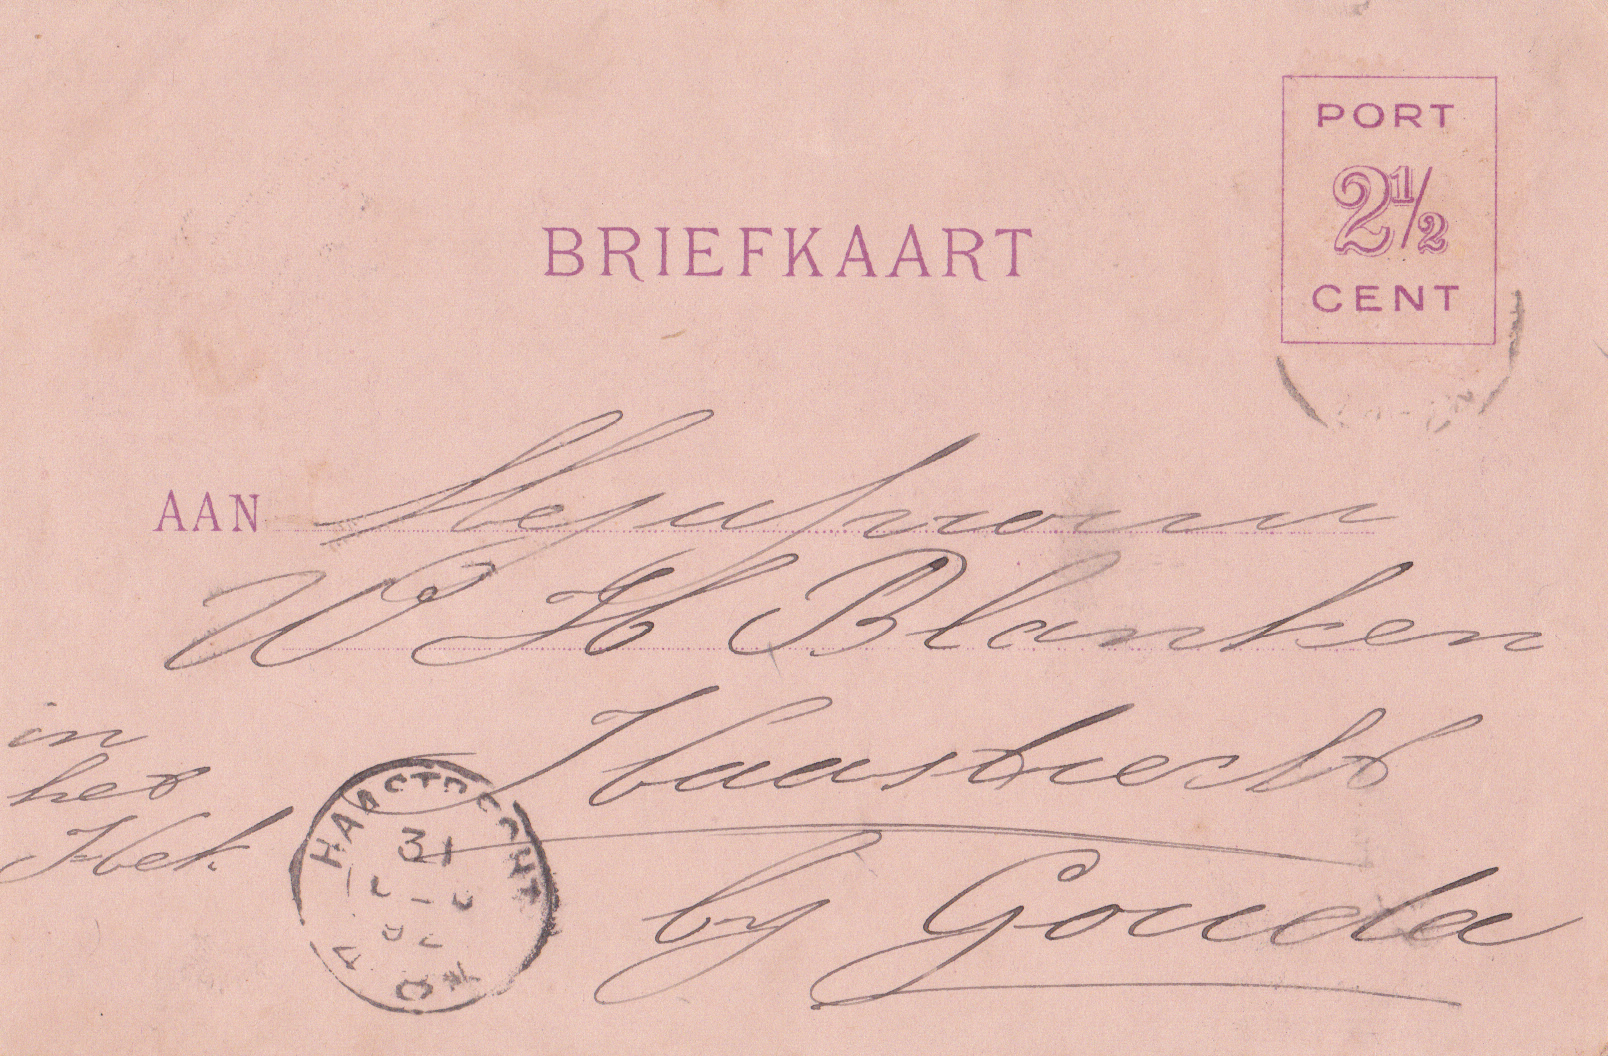 PORT
2½
CENT
BRIEFKAART
AAN Mejufvrouw
W H Blanken
Haastrecht
by Gouda
in
het
Hek
HAASTRECHT
31